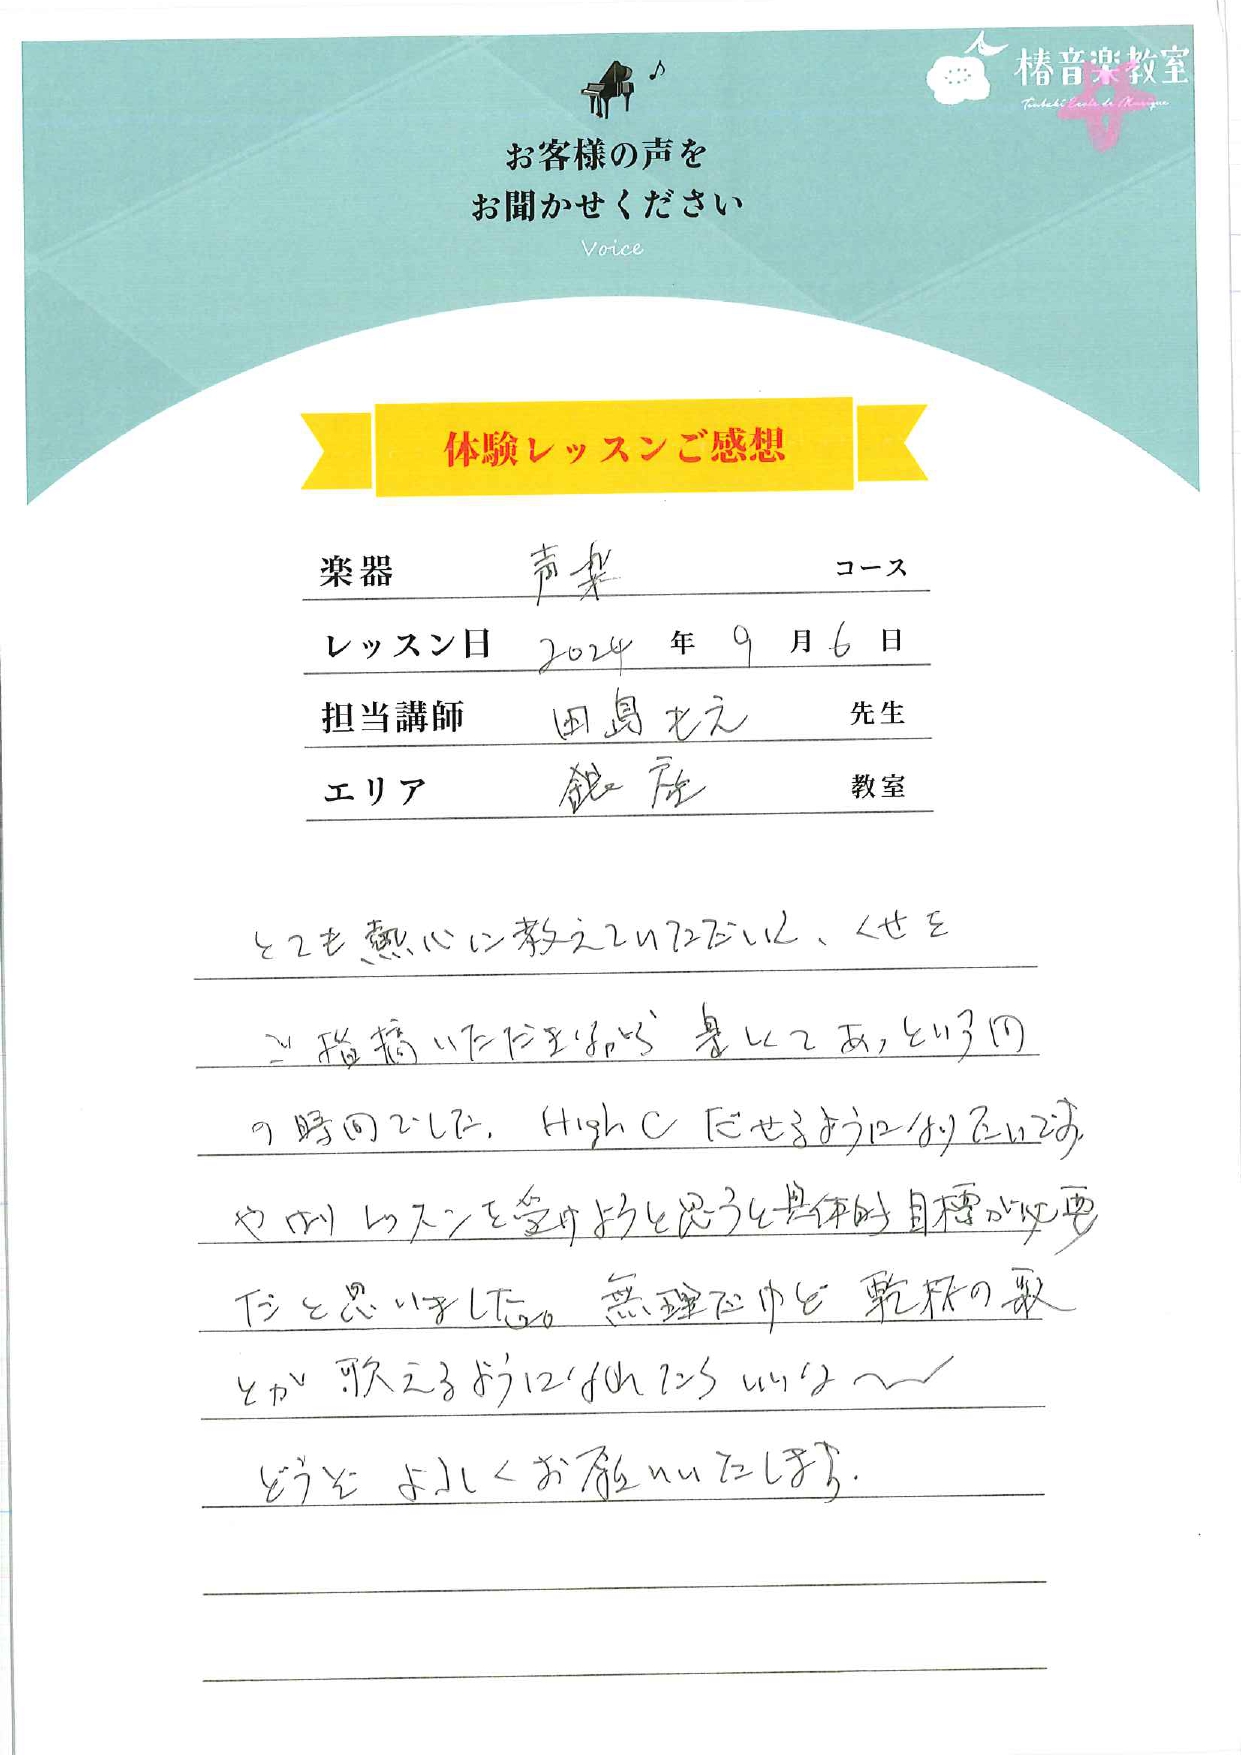 椿音楽教室
Tsubaki Ecole de Musique
お客様の声を
お聞かせください
Voice
体験レッスンご感想
楽器 声楽 コース
レッスン日 2024 年 9 月 6 日
担当講師 田島もえ 先生
エリア 銀座 教室
とても熱心に教えていただいて、くせを
ご指摘いただきながら 楽しくて あっという間
の時間でした。 High C だせるようになりたいです。
やはり レッスンを受けようと思うと具体的目標が必要
だと思いました。 無理だけど 乾杯の歌
とか 歌えるようになれたら いいな〜
どうぞ よろしくお願いいたします。